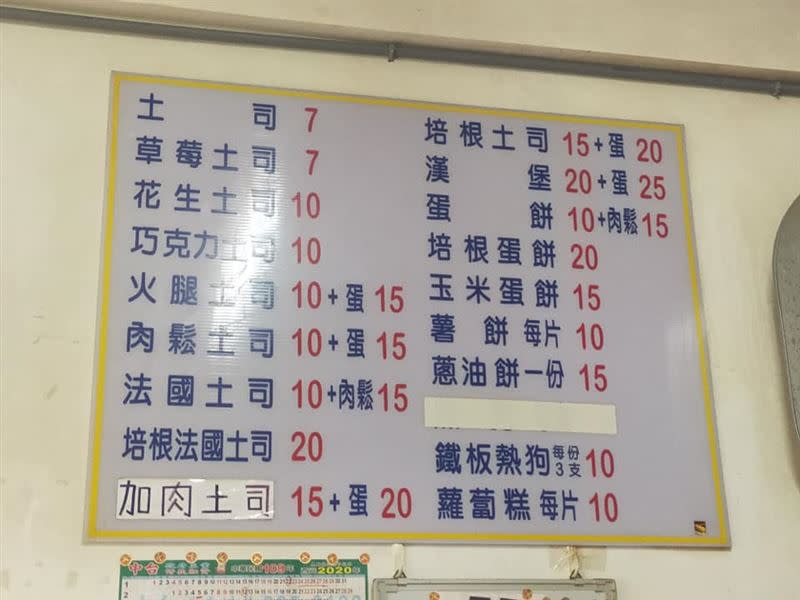 土司 7
草莓土司 7
花生土司 10
巧克力土司 10
火腿土司 10+蛋 15
肉鬆土司 10+蛋 15
法國土司 10+肉鬆 15
培根法國土司 20
加肉土司 15+蛋 20
培根土司 15+蛋 20
漢堡 20+蛋 25
蛋餅 10+肉鬆 15
培根蛋餅 20
玉米蛋餅 15
薯餅 每片 10
蔥油餅一份 15
鐵板熱狗 每份3支 10
蘿蔔糕 每片 10
中台
中華民國109年
2020年